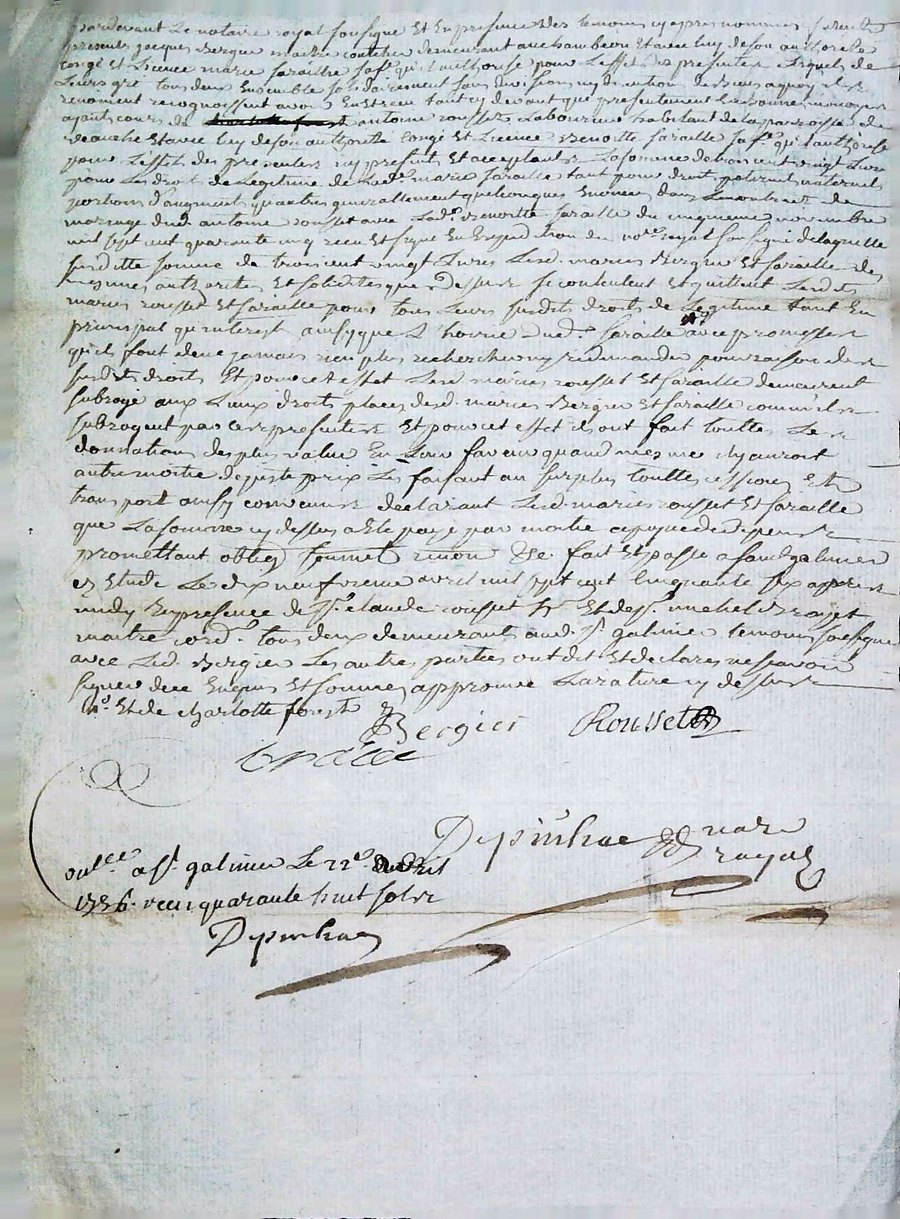 Pardevant Le notaire royal soussigné Et En presence des temoins cy apres nommes furent
presents jacques Bergier maitre demeurant au chambeon Et avec luy de son authorité
congé Et Licence marie faraille sa fe. qu'il authorise pour L'effet des presentes Lesquels de
Leurs gré tous deux Ensemble solidairement sans division ny discution de Biens a quoy ils
renoncent recognoissent avoir tant cy devant que presentement
ayant cours de antoine rousset Laboureur habitant de la parroisse de
Et avec luy de son authorité congé Et Licence Benoitte faraille sa fe. qu'il authorise
pour L'effet des presentes cy present Et acceptants La somme de trois cent vingt Livres
pour Les droits de Legitime de Lad. marie faraille tant pour droit paternel maternel
portions d'augment quautres generallement quelconques Enoncés dans Le contract de
mariage dud. antoine rousset avec Lad. Benoitte faraille du cinquieme novembre
mil sept cent quarante cinq recu Et signé En Expedition du no.re royal soussigné de laquelle
susditte somme de trois cent vingt Livres Lesd. mariés Bergier Et faraille des
mesmes authorités Et solidités que dessus se contentent Et quittent Lesdits
mariés rousset Et faraille pour tous Leurs susdits droits de Legitime tant En
principal qu'interest ainsy que L'hoirie dud. faraille avec promesse
qu'ils font de ne jamais rien plus rechercher ny redemander pour raison des
susdits droits Et pour cet effet Lesd. mariés rousset Et faraille demeurent
subrogé aux Lieux droits places desd. mariés Bergier Et faraille comme ils
subrogent par ces presentes Et pour cet effet ils ont fait touttes Les
donnations des plus value En Leur faveur quand mesme il y auroit
autre moitié de juste prix Les faisant au surplus touttes cessions Et
transport ainsy convenus declarant Lesd. mariés rousset Et faraille
que La somme cy dessus a Eté payé par moitié
promettant oblig. soumet. renon. &c fait Et passé a saint galmier
Es Etude Le dix neufvieme avril mil sept cent cinquante six apres
midy En presence de sr. claude rousset Et de sr. michel Brayet
maitre cord. tous deux demeurants aud. st. galmier temoins soussignes
avec Led. Bergier Les autres parties ont dit Et declarés ne scavoir
signer de ce Enquis Et sommés approuvé La rature cy dessus
Et de charlotte forest
Bergier Rousset
Depinhac
Brayet
Con.llé a st. galmier Le 22e avril
1756 recu quarante huit sols
Depinhac